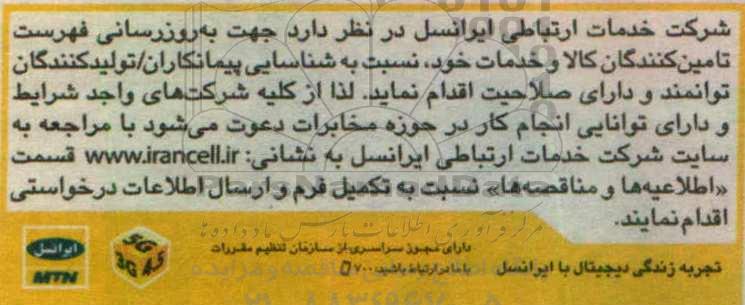 شرکت خدمات ارتباطی ایرانسل در نظر دارد جهت به‌روزرسانی فهرست
تامین‌کنندگان کالا و خدمات خود، نسبت به شناسایی پیمانکاران/تولیدکنندگان
توانمند و دارای صلاحیت اقدام نماید. لذا از کلیه شرکت‌های واجد شرایط
و دارای توانایی انجام کار در حوزه مخابرات دعوت می‌شود با مراجعه به
سایت شرکت خدمات ارتباطی ایرانسل به نشانی: www.irancell.ir قسمت
«اطلاعیه‌ها و مناقصه‌ها» نسبت به تکمیل فرم و ارسال اطلاعات درخواستی
اقدام نمایند.
مرکز فرآوری اطلاعات پارس ماد داده ها
دارای مجوز سراسری از سازمان تنظیم مقررات
تجربه زندگی دیجیتال با ایرانسل
با ما در ارتباط باشید: ۷۰۰
ایرانسل
MTN
5G
3G 4.5